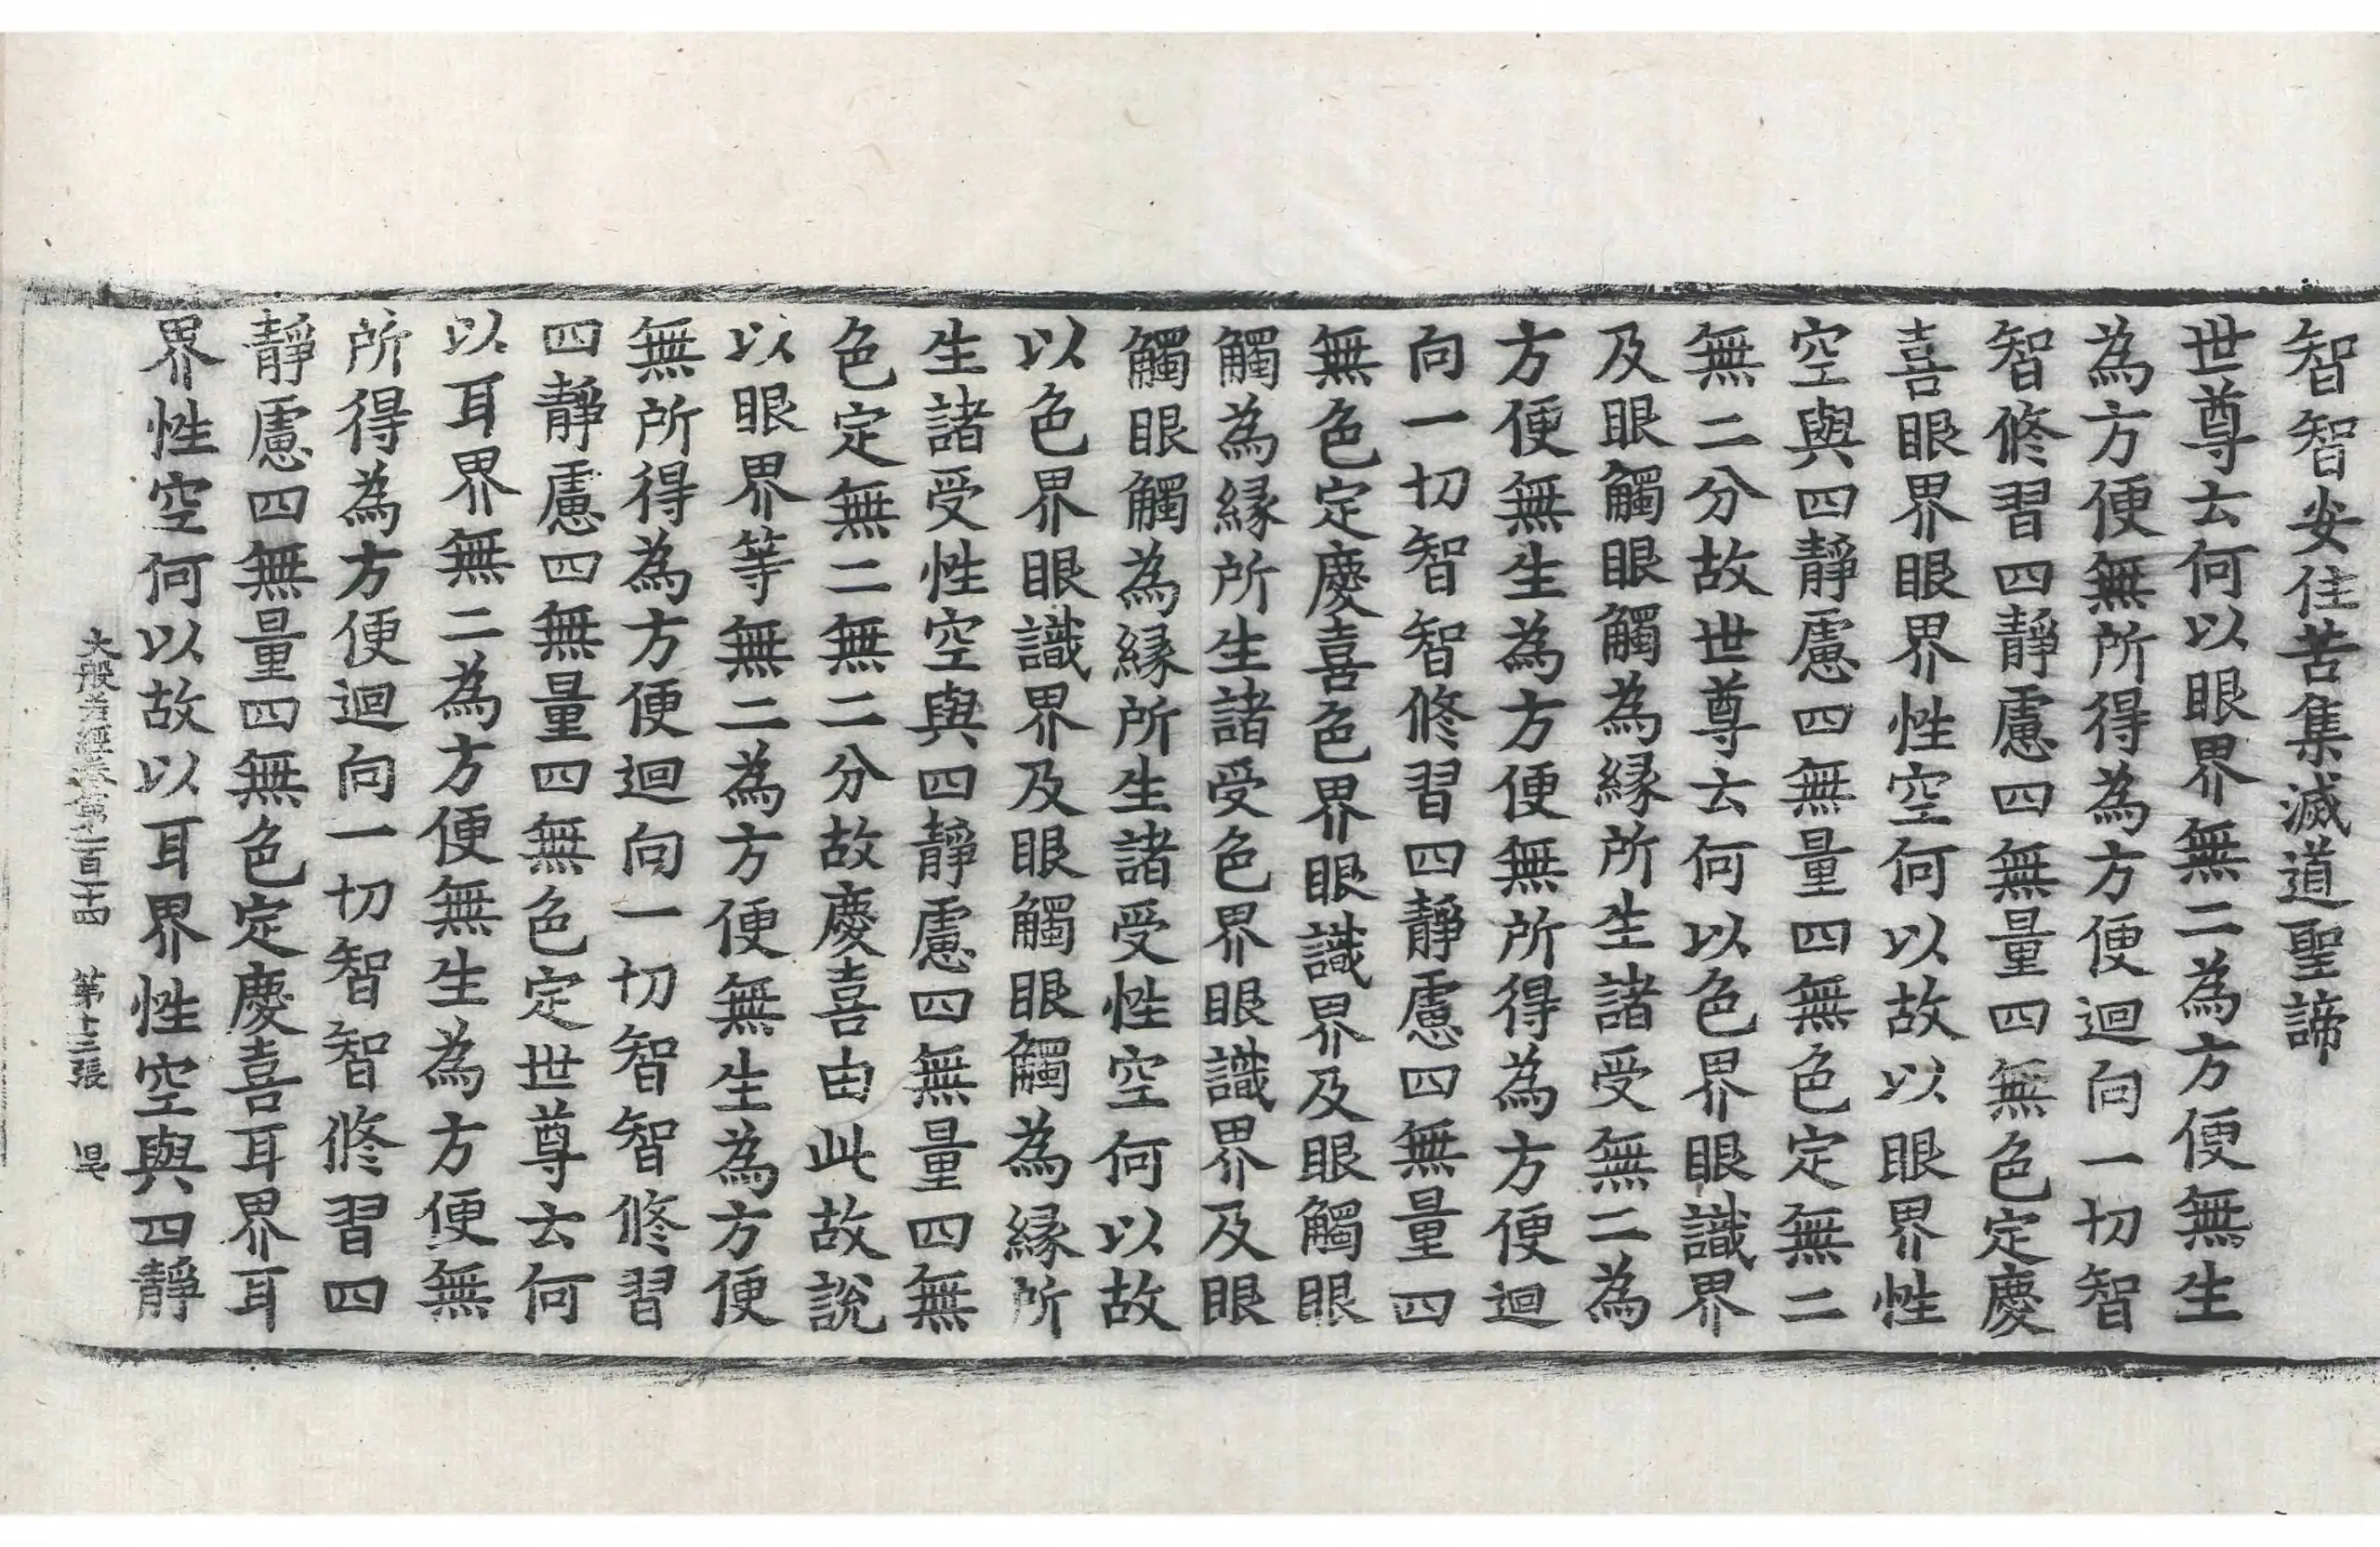 智智安住苦集滅道聖諦
世尊云何以眼界無二為方便無生
為方便無所得為方便迴向一切智
智修習四靜慮四無量四無色定慶
喜眼界眼界性空何以故以眼界性
空與四靜慮四無量四無色定無二
無二分故世尊云何以色界眼識界
及眼觸眼觸為緣所生諸受無二為
方便無生為方便無所得為方便迴
向一切智智修習四靜慮四無量四
無色定慶喜色界眼識界及眼觸眼
觸為緣所生諸受色界眼識界及眼
觸眼觸為緣所生諸受性空何以故
以色界眼識界及眼觸眼觸為緣所
生諸受性空與四靜慮四無量四無
色定無二無二分故慶喜由此故說
以眼界等無二為方便無生為方便
無所得為方便迴向一切智智修習
四靜慮四無量四無色定世尊云何
以耳界無二為方便無生為方便無
所得為方便迴向一切智智修習四
靜慮四無量四無色定慶喜耳界耳
界性空何以故以耳界性空與四靜
大般若經卷第一百二十四 第十三張 吳